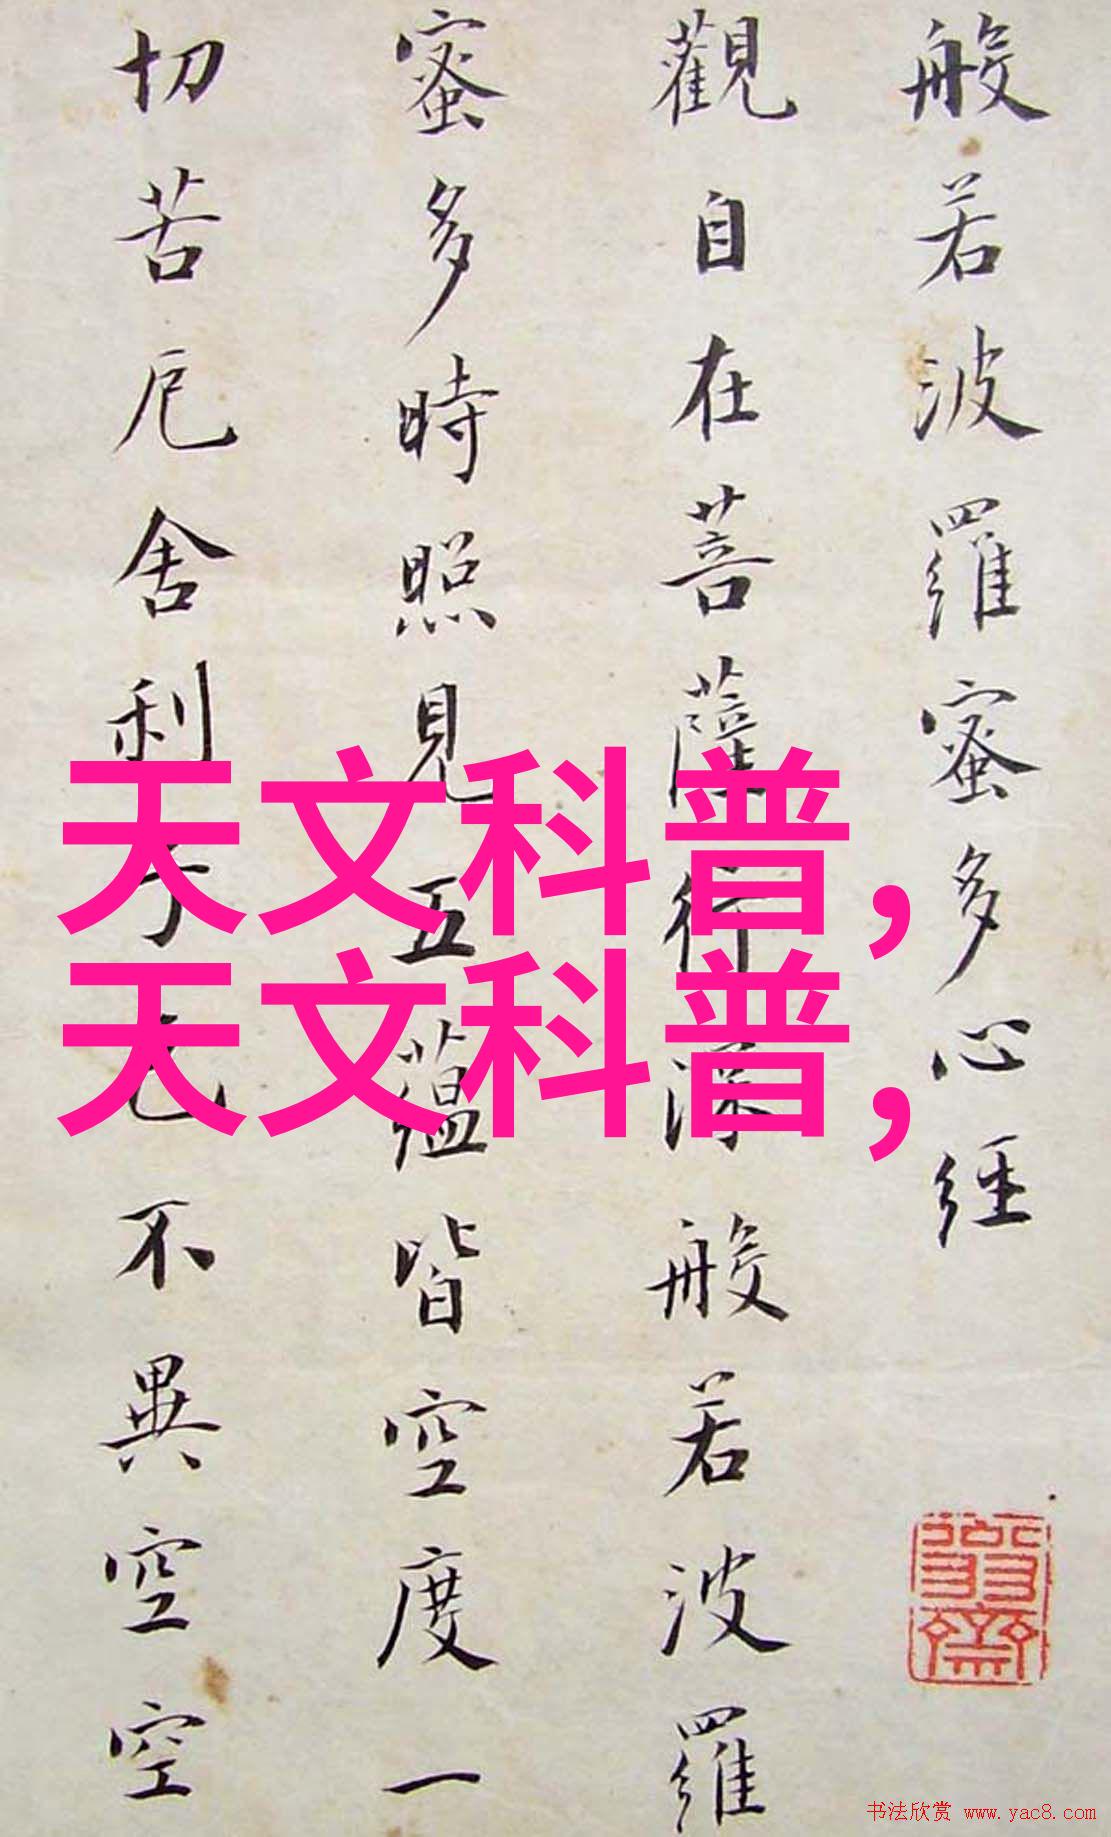 般若波羅蜜多心經
觀自在菩薩行深般若波羅
蜜多時照見五蘊皆空度一
切苦厄舍利子色不異空空
天文科普，
天文科普，
书法欣赏 www.yac8.com